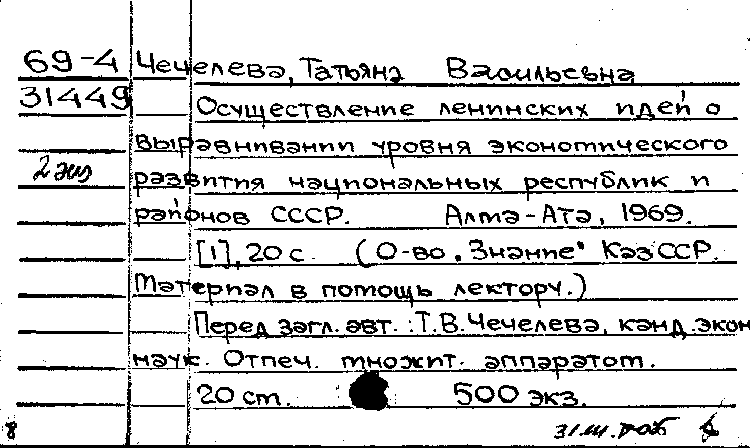 69-4 Чечелева, Татьяна Васильевна
31449 Осуществление ленинских идей о
выравнивании уровня экономического
2 экз развития национальных республик и
районов СССР. Алма-Ата, 1969.
[1], 20 с. (О-во "Знание" КазССР.
Материал в помощь лектору.)
Перед загл. авт.: Т.В.Чечелева, канд. экон
наук. Отпеч. множит. аппаратом.
20 см. 500 экз.
8 31.III.